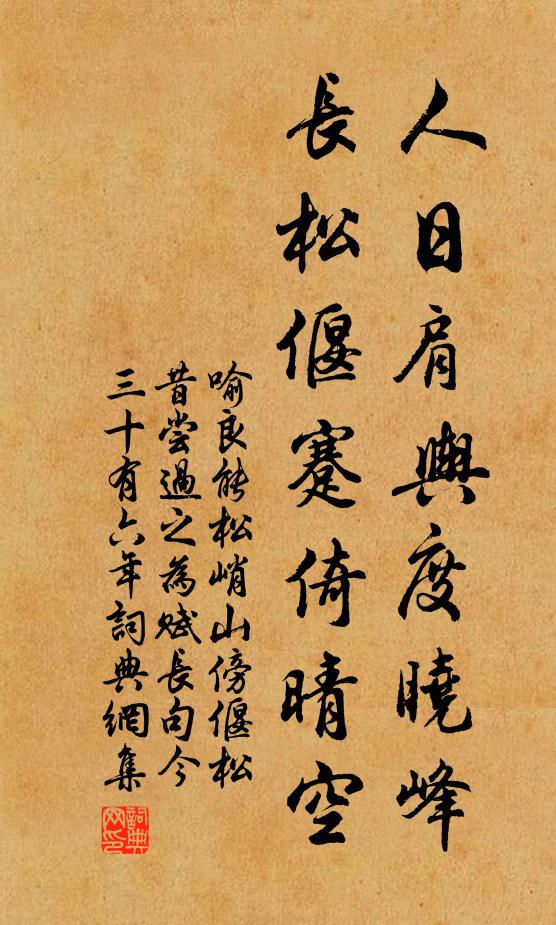 人日肩輿度曉峰
長松偃蹇倚晴空
喻良能松峭山傍偃松
昔尝過之為赋長句今
三十有六年詞典網集
詞典网印